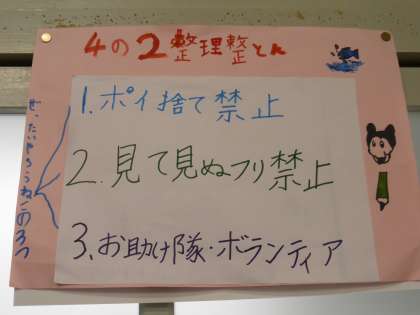 4の2整理整とん
1.ポイ捨て禁止
2.見て見ぬフリ禁止
3、お助け隊・ボランティア
ぜったいやろうね!この3つ